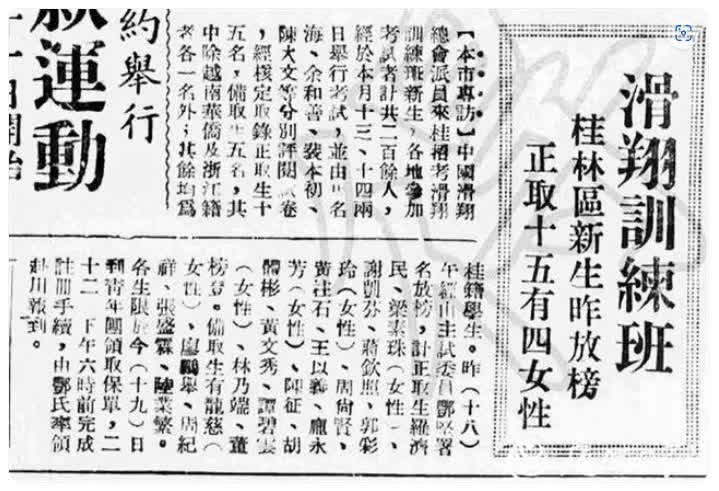 滑翔訓練班
桂林區新生昨放榜
正取十五有四女性
【本市專訪】中國滑翔
總會派員來桂招考滑翔
訓練班新生,各地參加
考試者計共二百餘人,
經於本月十三、十四兩
日舉行考試,並由
海、余和善、裴本初、
陳大文等分別評閱試卷
,經核定取錄正取生十
五名,備取生五名,其
中除越南華僑及浙江籍
者各一名外,其餘均為
桂籍學生。昨(十八)
午經由主試委員鄧堅署
名放榜,計正取生羅濟
民、梁素珠(女性)、
謝凱芬、蔣欽照、郭彩
玲(女性)、周尙賢、
黃注石、王以義、龐永
芳(女性)、陳征、胡
體彬、黃文秀、譚碧雲
(女性)、林乃端、董
榜登。備取生有龍慈(
女性)、廖鵬舉、周紀
祥、張盛霖、陸業繁。
各生限於今(十九)日
到靑年團領取保單,二
十二、下午六時前完成
註冊手續,由鄧氏率領
赴川報到。
約舉行
運動